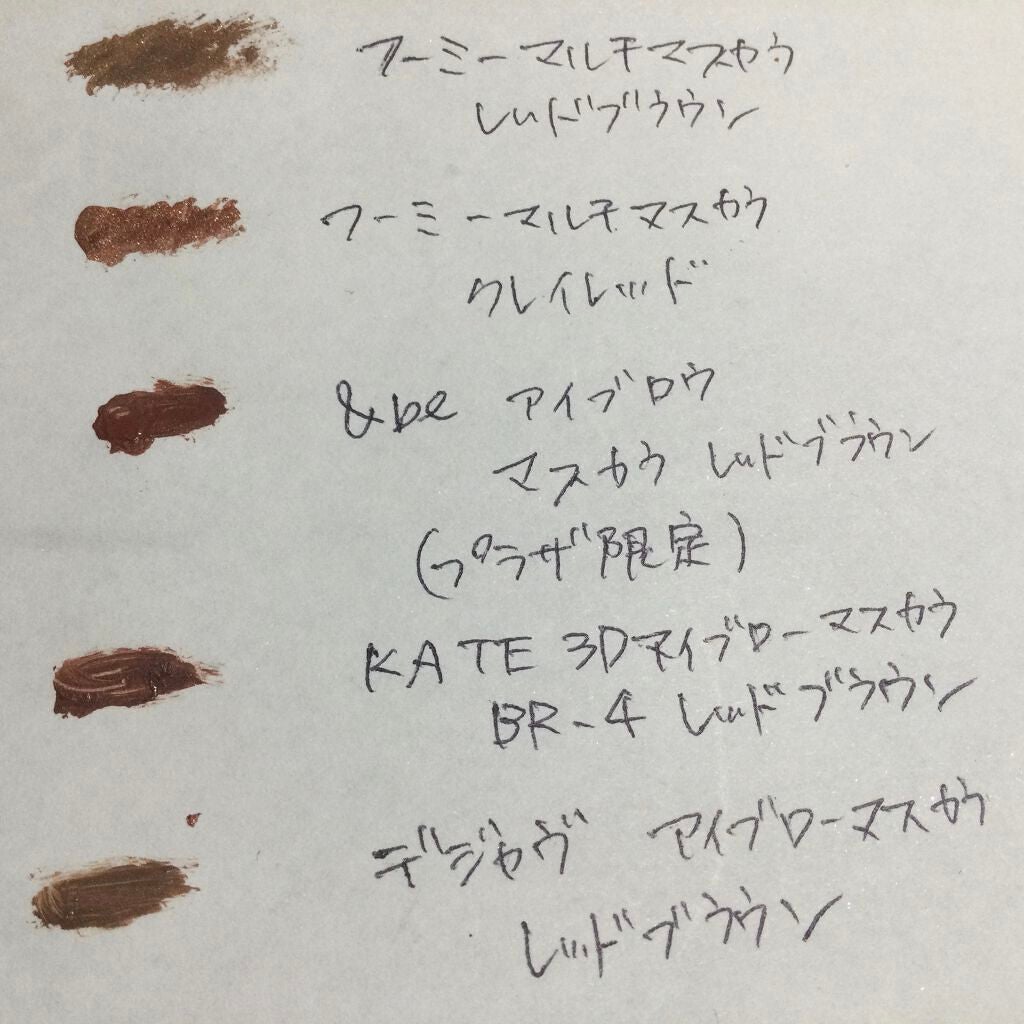 フーミーマルチマスカラ
レッドブラウン
フーミーマルチマスカラ
クレイレッド
&be アイブロウ
マスカラ レッドブラウン
(プラザ限定)
KATE 3Dアイブローマスカラ
BR-4 レッドブラウン
デジャヴ アイブローマスカラ
レッドブラウン